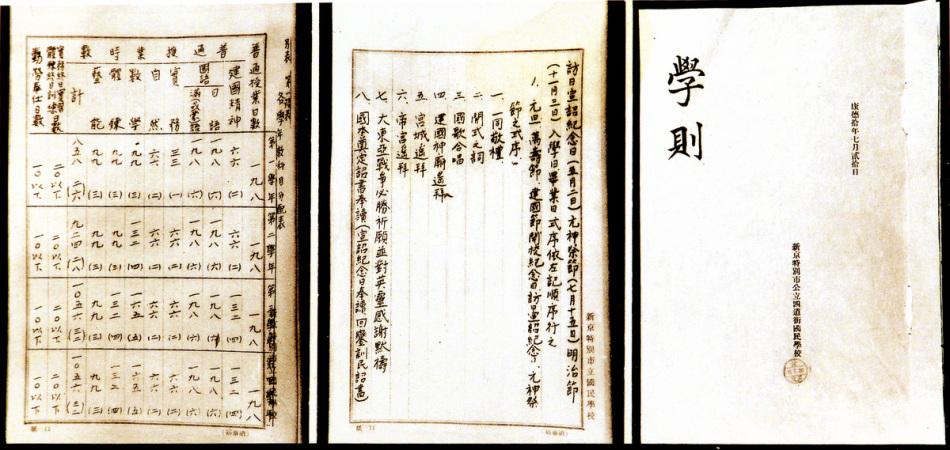 學則
康德拾年七月貳拾日
新京特別市公立四道街國民學校
新京特別市立國民學校
訪日宣詔紀念日(五月二日)元神祭節(七月十五日)明治節
(十一月三日)入學日畢業日式序依左記順序行之
1、元旦、萬壽節、建國節開校紀念日訪日宣詔紀念日、元神祭
節之式序、
一、一同敬禮、
二、開式之詞
三、國歌合唱
四、建國神廟遙拜
五、宮城遙拜
六、帝宮遙拜
七、大東亞戰爭必勝祈願並對英靈感謝默禱
八、國本奠定詔書奉讀(宣詔紀念日奉讀回鑾訓民詔書)
別表 第一號表
各學年教科目分配表
第一學年 第二學年 第
普通授業日數 一九八 一九八 一九八 一九八
普通授業時數
建國精神 六六(二) 六六(二) 一三二(四) 一三二(四)
國語 日語 一九八(六) 一九八(六) 一九八(六) 一九八(六)
滿語 一九八(六) 一九八(六) 一九八(六) 一九八(六)
實務 三三(一) 六六(二) 六六(二) 六六(二)
自然 六六(二) 六六(二) 六六(二) 六六(二)
數學 一三二(四) 一六五(五) 一六五(五)
體練 九九(三) 九九(三) 一三二(四) 一三二(四)
藝能 九九(三) 九九(三) 九九(三) 九九(三)
計 八五八(二六) 九二四(二八) 一〇五六(三二) 一〇五六(三二)
二〇以下 二〇以下 二〇以下 二〇以下
勤勞奉仕日數 一〇以下 一〇以下 一〇以下 一〇以下